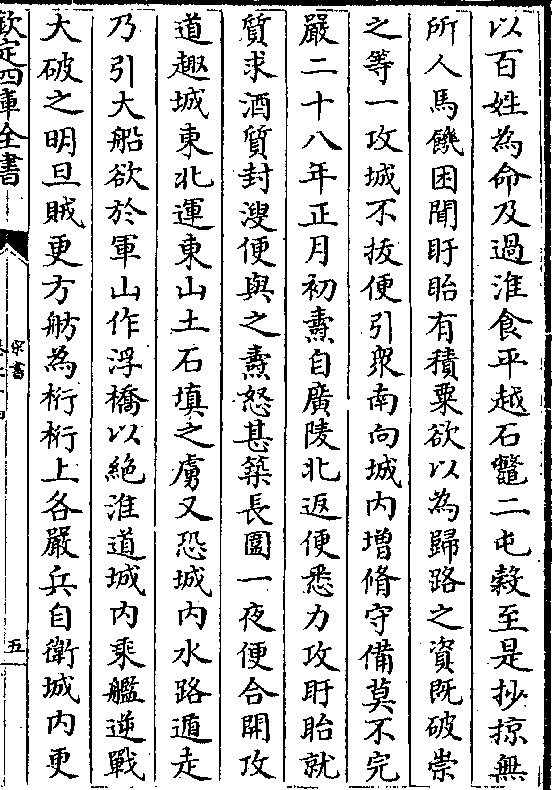 以百姓為命及過淮食平越石鼈二屯穀至是抄掠無
所人馬饑困聞盱眙有積粟欲以為歸路之資既破崇
之等一攻城不拔便引衆南向城内增脩守備莫不完
嚴二十八年正月初燾自廣陵北返便悉力攻盱眙就
質求酒質封溲便與之燾怒甚築長圍一夜便合開攻
道趣城東北運東山土石填之虜又恐城内水路遁走
乃引大船欲於軍山作浮橋以絶淮道城内乘艦逆戰
大破之明旦賊更方舫為桁桁上各嚴兵自衛城内更
欽定四庫全書
宋書
五